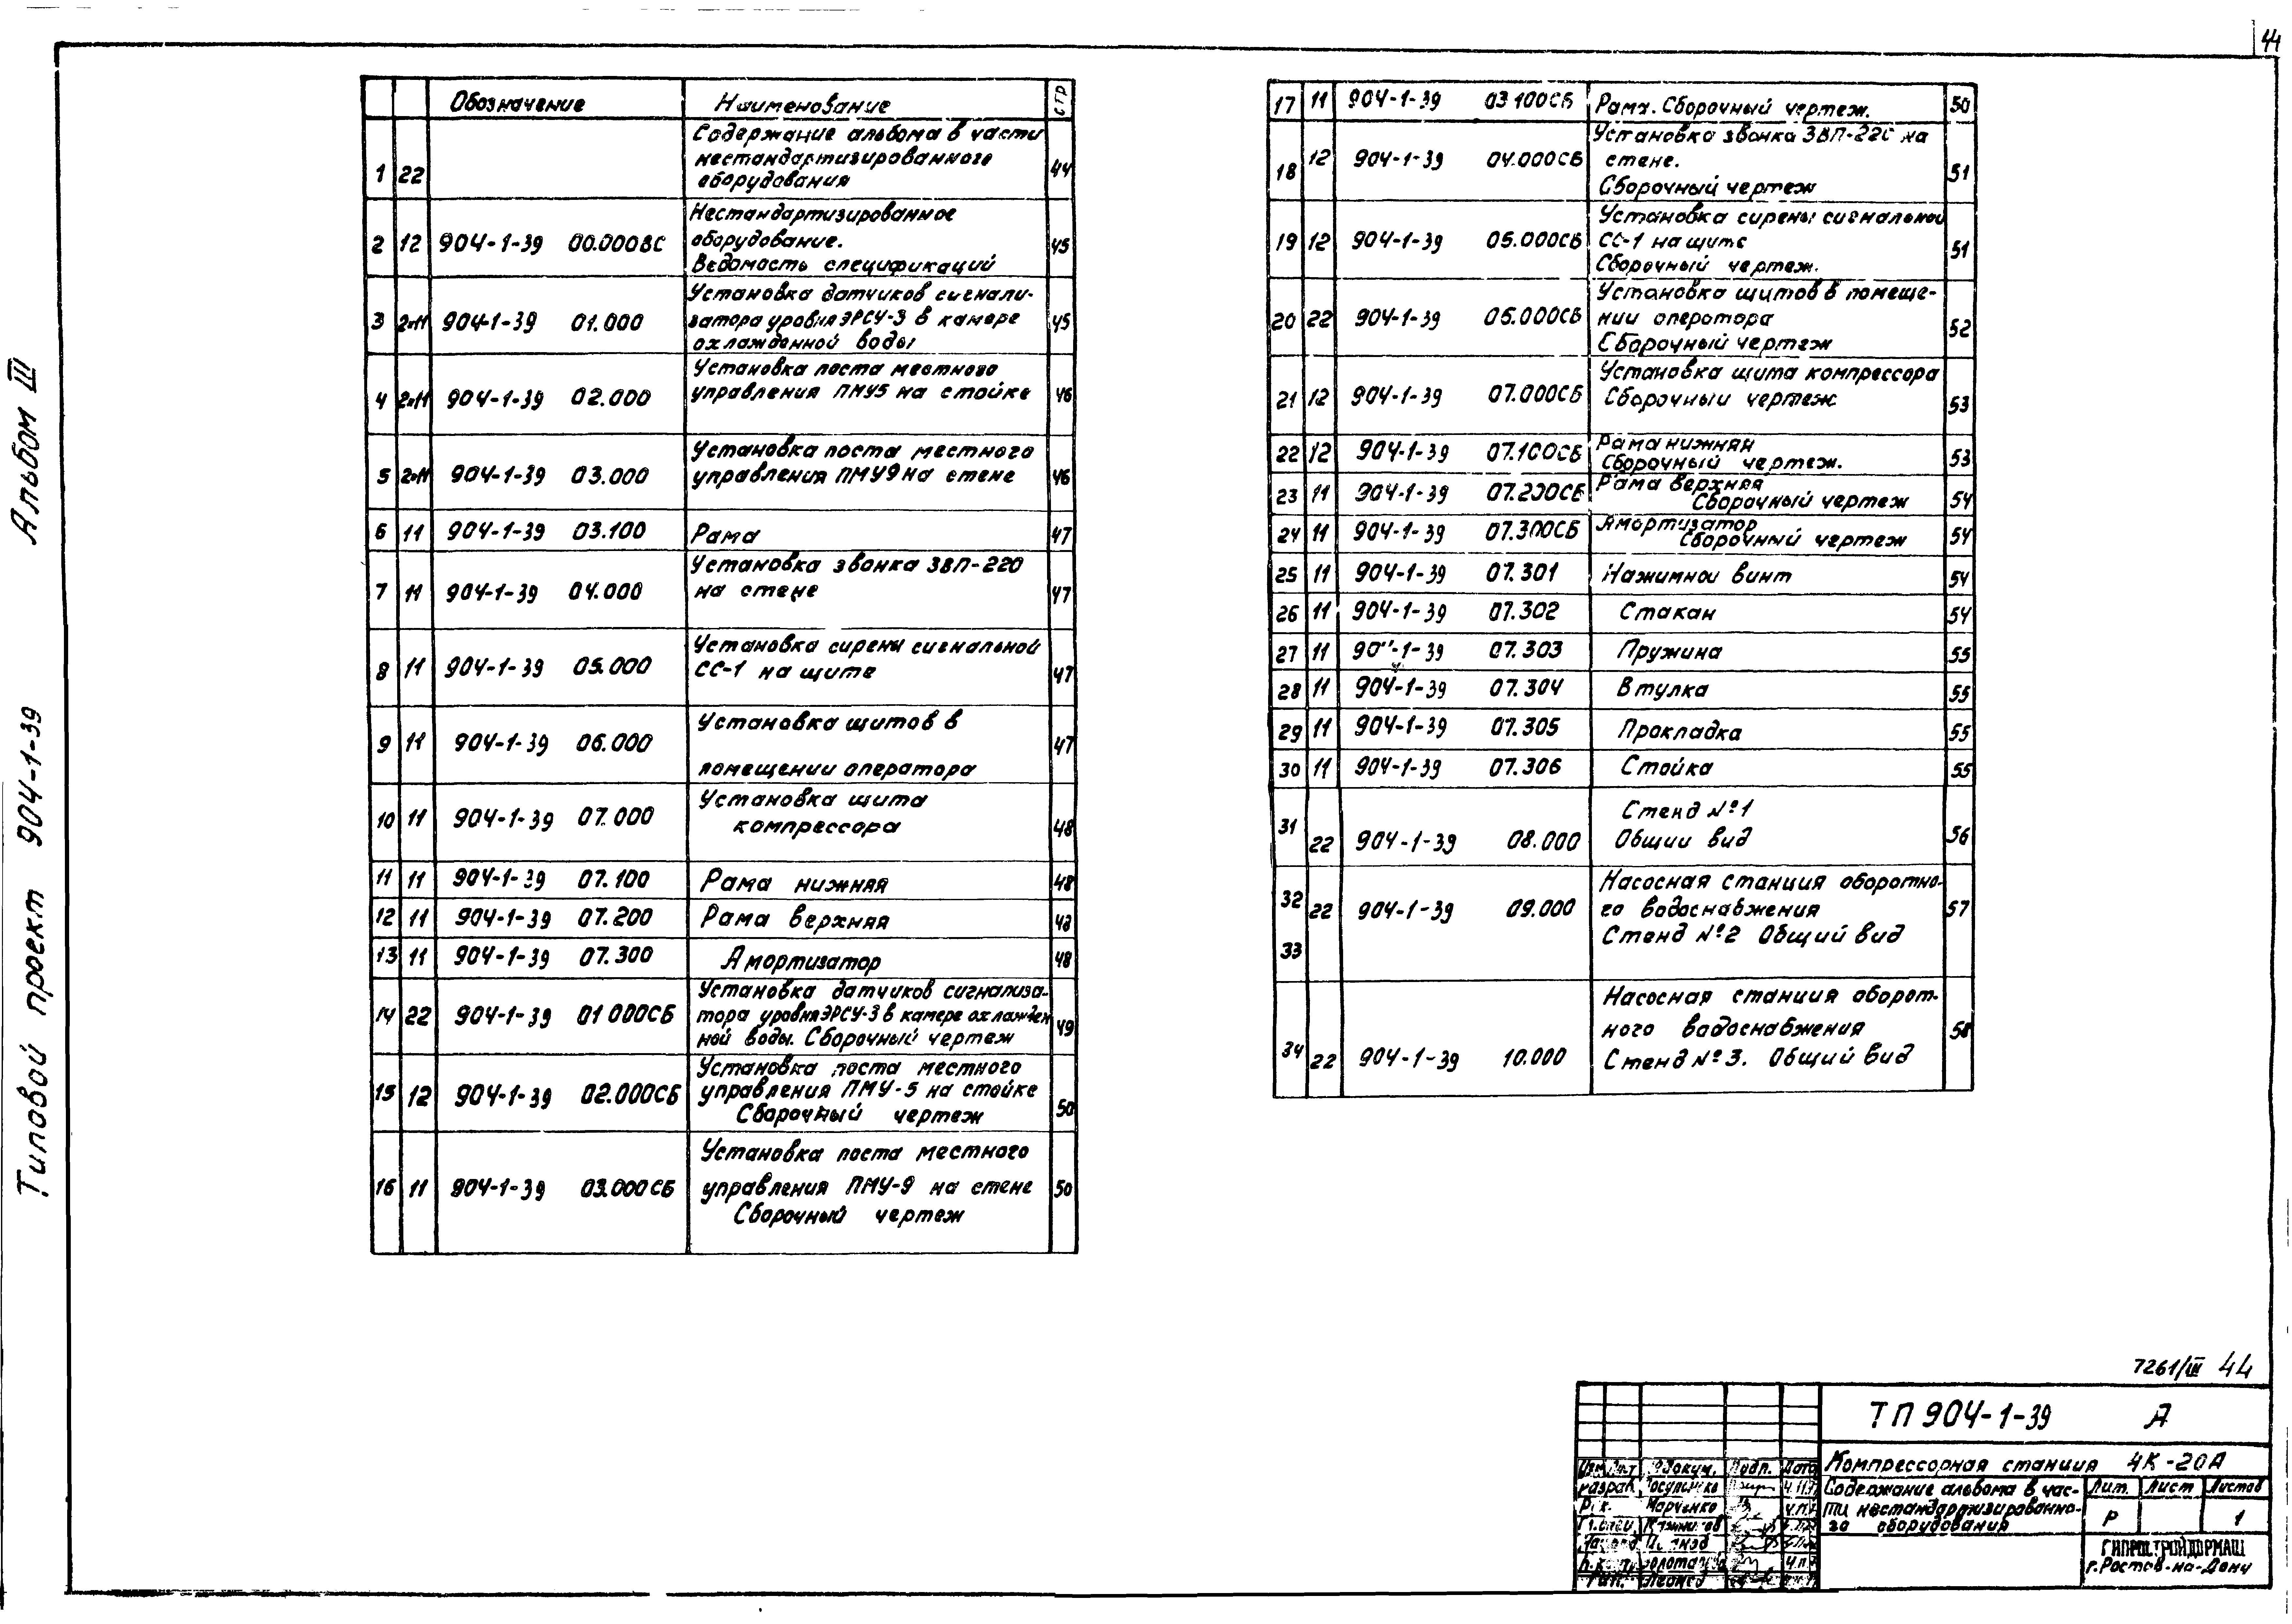 44
Альбом III
Типовой проект 904-1-39
Обозначение Наименование стр
1 22 Содержание альбома в части нестандартизированного оборудования 44
2 12 904-1-39 00.000ВС Нестандартизированное оборудование. Ведомость спецификаций 45
3 2×11 904-1-39 01.000 Установка датчиков сигнали-
затора уровня ЭРСУ-3 в камере охлажденной воды 45
4 2×11 904-1-39 02.000 Установка поста местного управления ПМУ5 на стойке 46
5 2×11 904-1-39 03.000 Установка поста местного управления ПМУ9 на стене 46
6 11 904-1-39 03.100 Рама 47
7 11 904-1-39 04.000 Установка звонка ЗВП-220 на стене 47
8 11 904-1-39 05.000 Установка сирены сигнальной СС-1 на щите 47
9 11 904-1-39 06.000 Установка щитов в помещении оператора 47
10 11 904-1-39 07.000 Установка щита компрессора 48
11 11 904-1-39 07.100 Рама нижняя 48
12 11 904-1-39 07.200 Рама верхняя 48
13 11 904-1-39 07.300 Амортизатор 48
14 22 904-1-39 01 000СБ Установка датчиков сигнализа-
тора уровня ЭРСУ-3 в камере охлажден
ной воды. Сборочный чертеж 49
15 12 904-1-39 02.000СБ Установка поста местного управления ПМУ-5 на стойке Сборочный чертеж 50
16 11 904-1-39 03.000СБ Установка поста местного управления ПМУ-9 на стене Сборочный чертеж 50
17 11 904-1-39 03 100СБ Рама. Сборочный чертеж. 50
18 12 904-1-39 04.000СБ Установка звонка ЗВП-220 на стене. Сборочный чертеж 51
19 12 904-1-39 05.000СБ Установка сирены сигнальной СС-1 на щите Сборочный чертеж. 51
20 22 904-1-39 06.000СБ Установка щитов в помеще-
нии оператора Сборочный чертеж 52
21 12 904-1-39 07.000СБ Установка щита компрессора Сборочный чертеж 53
22 12 904-1-39 07.100СБ Рама нижняя Сборочный чертеж. 53
23 11 904-1-39 07.200СБ Рама верхняя Сборочный чертеж 54
24 11 904-1-39 07.300СБ Амортизатор Сборочный чертеж 54
25 11 904-1-39 07.301 Нажимной винт 54
26 11 904-1-39 07.302 Стакан 54
27 11 904-1-39 07.303 Пружина 55
28 11 904-1-39 07.304 Втулка 55
29 11 904-1-39 07.305 Прокладка 55
30 11 904-1-39 07.306 Стойка 55
31 22 904-1-39 08.000 Стенд №1 Общий вид 56
32 22 904-1-39 09.000 Насосная станция оборотно-
го водоснабжения
33 Стенд №2 Общий вид 57
34 22 904-1-39 10.000 Насосная станция оборот-
ного водоснабжения Стенд №3. Общий вид 58
7261/III 44
ТП 904-1-39 А
Компрессорная станция 4К-20А
Содержание альбома в час-
ти нестандартизированно-
го оборудования
Лит. Лист Листов
Р 1
ГИПРОСТРОЙДОРМАШ
г.Ростов-на-Дону
№ докум. Подп. Дата
Разраб.
Марченко